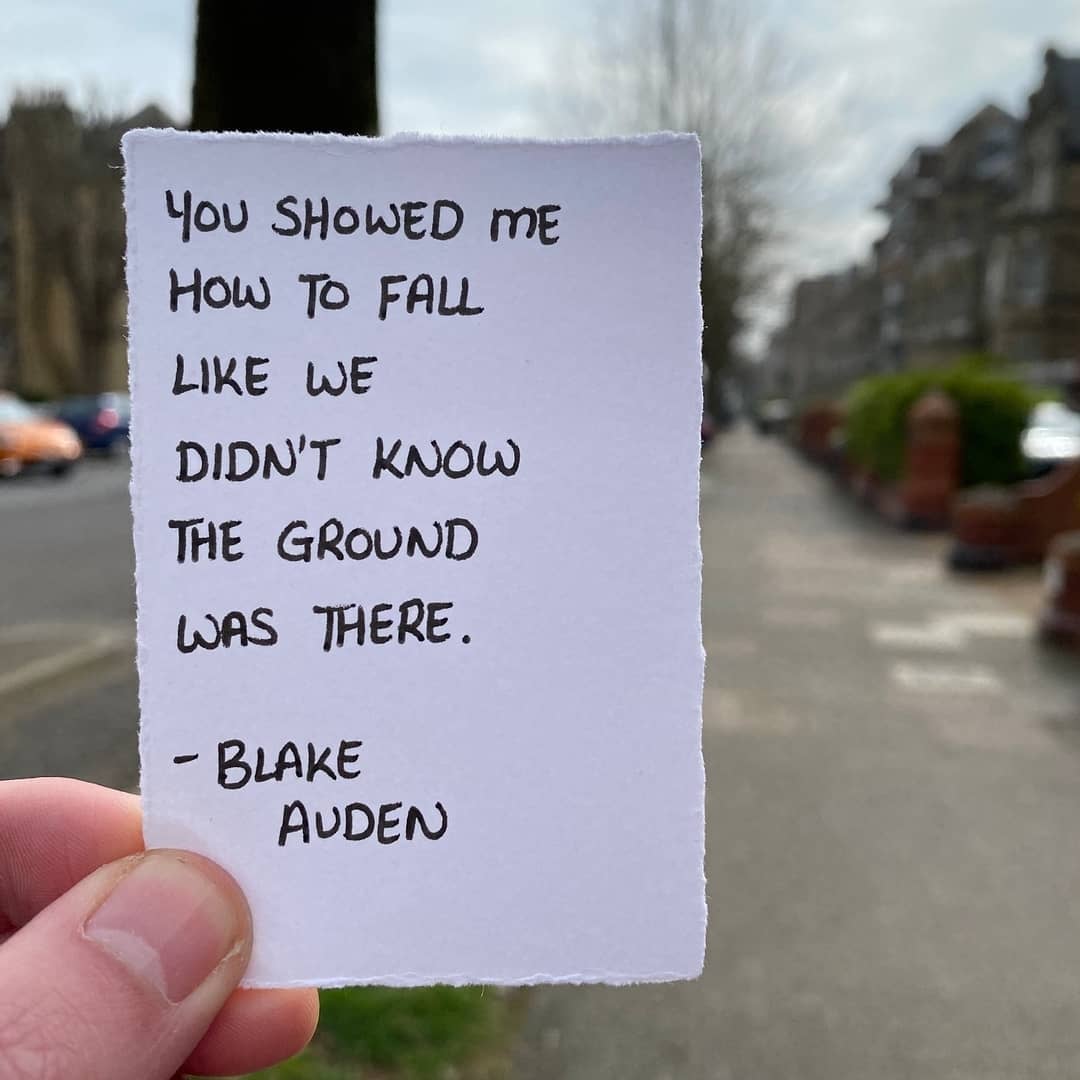 YOU SHOWED ME
HOW TO FALL
LIKE WE
DIDN'T KNOW
THE GROUND
WAS THERE.
- BLAKE
AUDEN